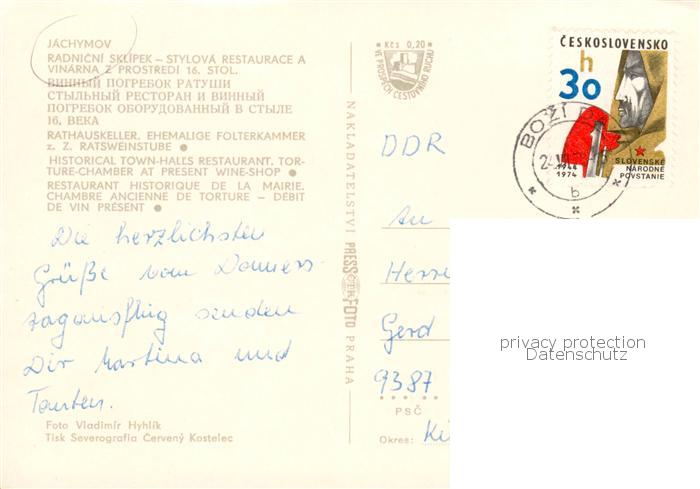 JÁCHYMOV
RADNIČNÍ SKLÍPEK – STYLOVÁ RESTAURACE A
VINÁRNA Z PROSTŘEDÍ 16. STOL.
ВИННЫЙ ПОГРЕБОК РАТУШИ
СТЫЛЬНЫЙ РЕСТОРАН И ВИННЫЙ
ПОГРЕБОК ОБОРУДОВАННЫЙ В СТЫЛЕ
16. ВЕКА
RATHAUSKELLER. EHEMALIGE FOLTERKAMMER
z. Z. RATSWEINSTUBE ●
HISTORICAL TOWN-HALLS RESTAURANT. TOR-
TURE-CHAMBER AT PRESENT WINE-SHOP ●
RESTAURANT HISTORIQUE DE LA MAIRIE.
CHAMBRE ANCIENNE DE TORTURE – DÉBIT
DE VIN PRÉSENT ●
Die herzlichsten
Grüße vom Donners-
tagausflug senden
Dir Martina und
Tanten.
Foto Vladimír Hyhlík
Tisk Severografia Červený Kostelec
NAKLADATELSTVÍ PRESSFOTO PRAHA
Kčs 0,20
VE PROSPĚCH CESTOVNÍHO RUCHU
ČESKOSLOVENSKO
h
30
1944
1974
SLOVENSKÉ
NÁRODNÉ
POVSTANIE
BOŽÍ
b
DDR
An
Gerd
9387
PSČ
Okres:
privacy protection
Datenschutz